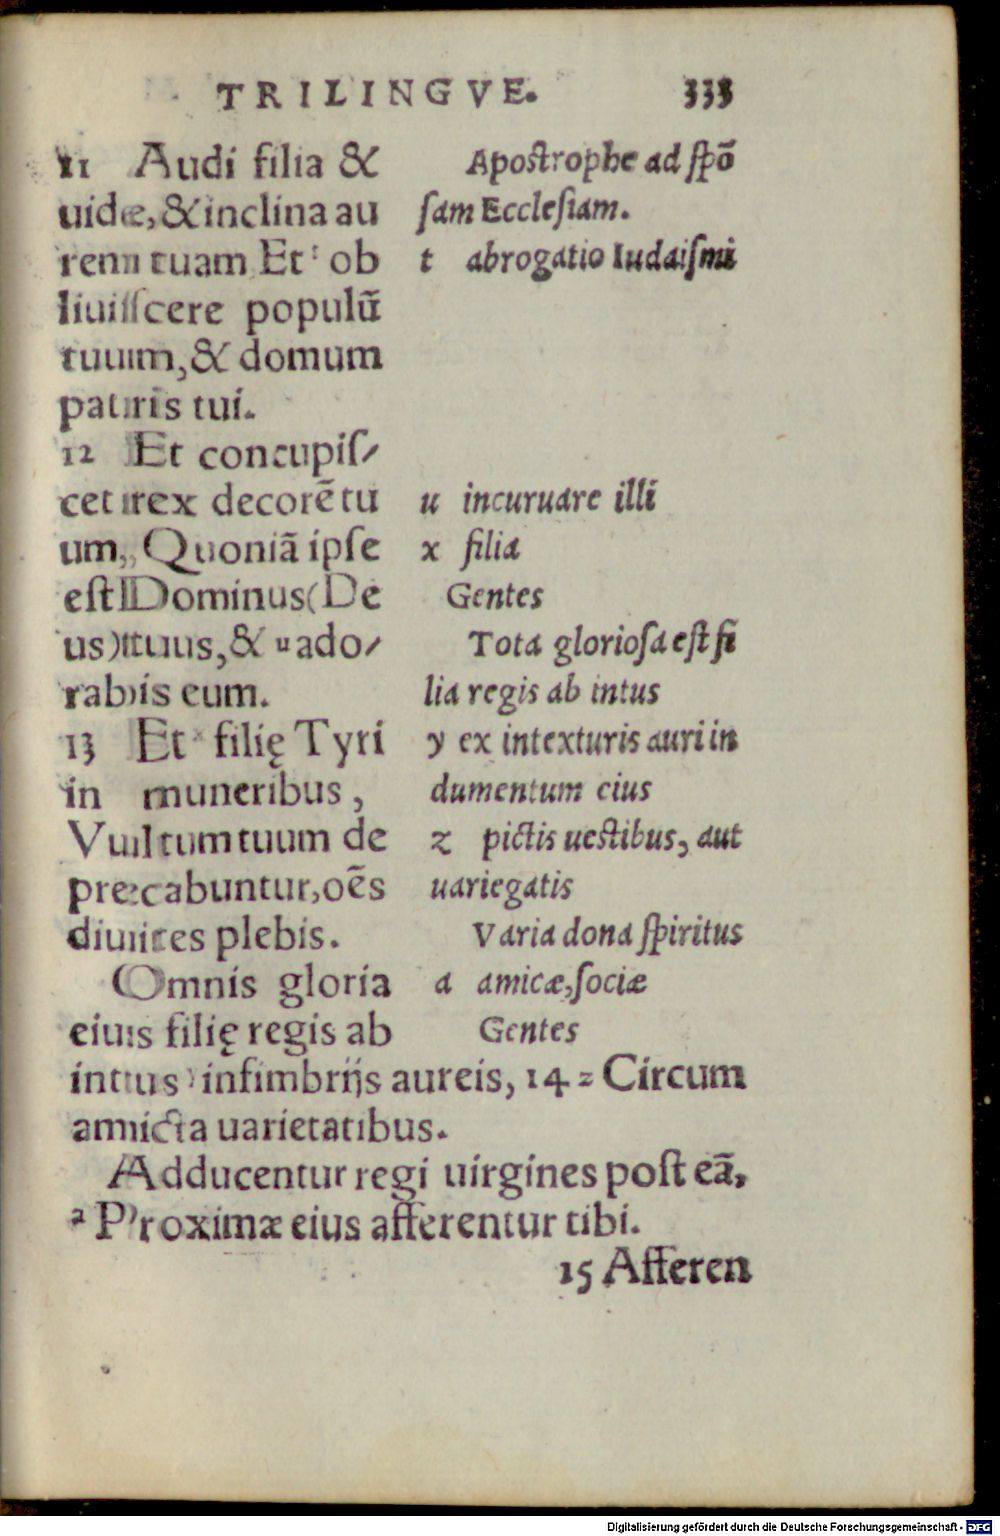 TRILINGVE. 333
11 Audi filia &
uide, & inclina au
rem tuam Et ᵗ ob
liuiscere populū
tuum, & domum
patris tui.
12 Et concupiſ-
cet rex decorē tu
um, Quoniā ipſe
eſt Dominus (De
us) tuus, & ᵘ ado-
rabis eum.
13 Et ˣ filię Tyri
in muneribus,
Vultum tuum de
precabuntur, oēs
diuites plebis.
Omnis gloria
eius filię regis ab
intus ʸ in fimbrijs aureis, 14 ᶻ Circum
amicta uarietatibus.
Adducentur regi uirgines poſt eā,
ᵃ Proximæ eius afferentur tibi.
15 Afferen
Apoſtrophe ad ſpō
ſam Eccleſiam.
t abrogatio Iudaiſmi
u incuruare illi
x filia
Gentes
Tota glorioſa eſt fi
lia regis ab intus
y ex intexturis auri in
dumentum eius
z pictis ueſtibus, aut
uariegatis
Varia dona ſpiritus
a amicæ, ſociæ
Gentes
Digitalisierung gefördert durch die Deutsche Forschungsgemeinschaft - DFG